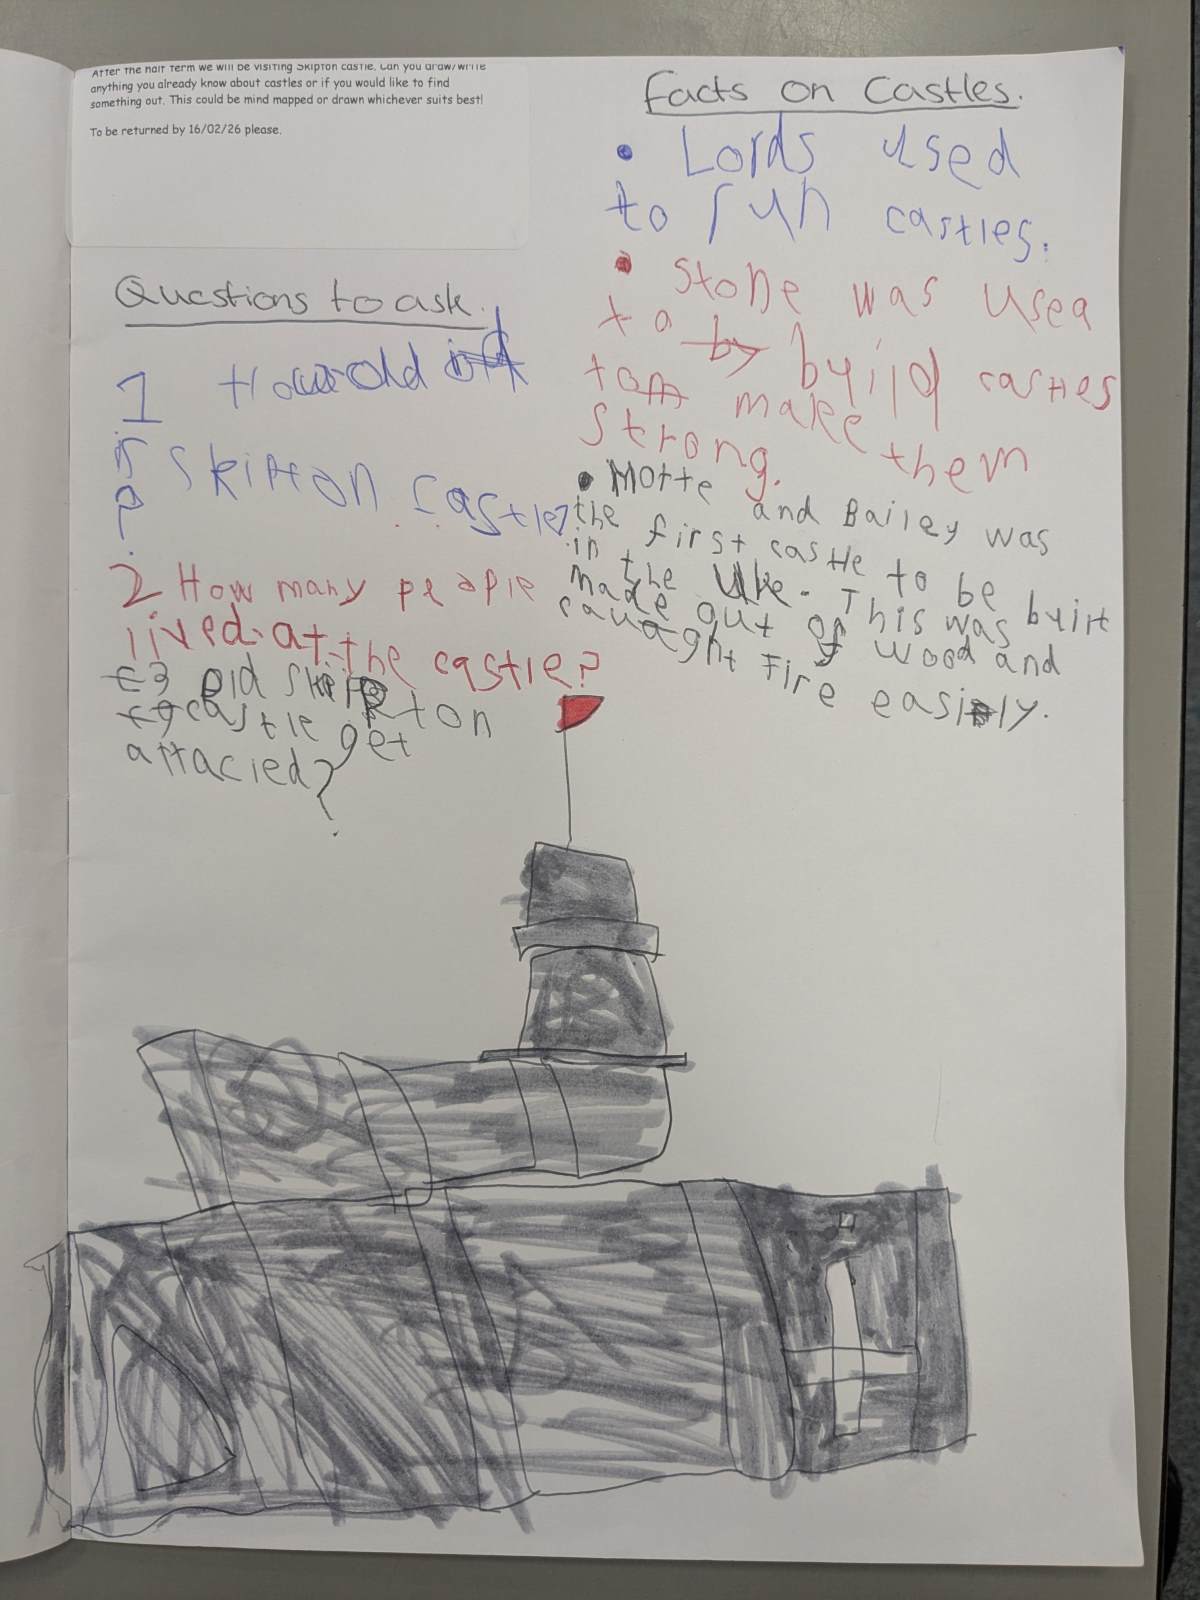 After the half term we will be visiting Skipton castle. Can you draw/write
anything you already know about castles or if you would like to find
something out. This could be mind mapped or drawn whichever suits best!
To be returned by 16/02/26 please.
Questions to ask.
1 How old
is Skipton castle?
?
2 How many people
lived at the castle?
3 Did Skipton
castle get
attacked?
Facts on Castles.
• Lords used
to run castles.
• Stone was used
to build castles
to make them
strong.
• Motte and Bailey was
the first castle to be built
in the Uk. This was
made out of wood and
caught fire easily.